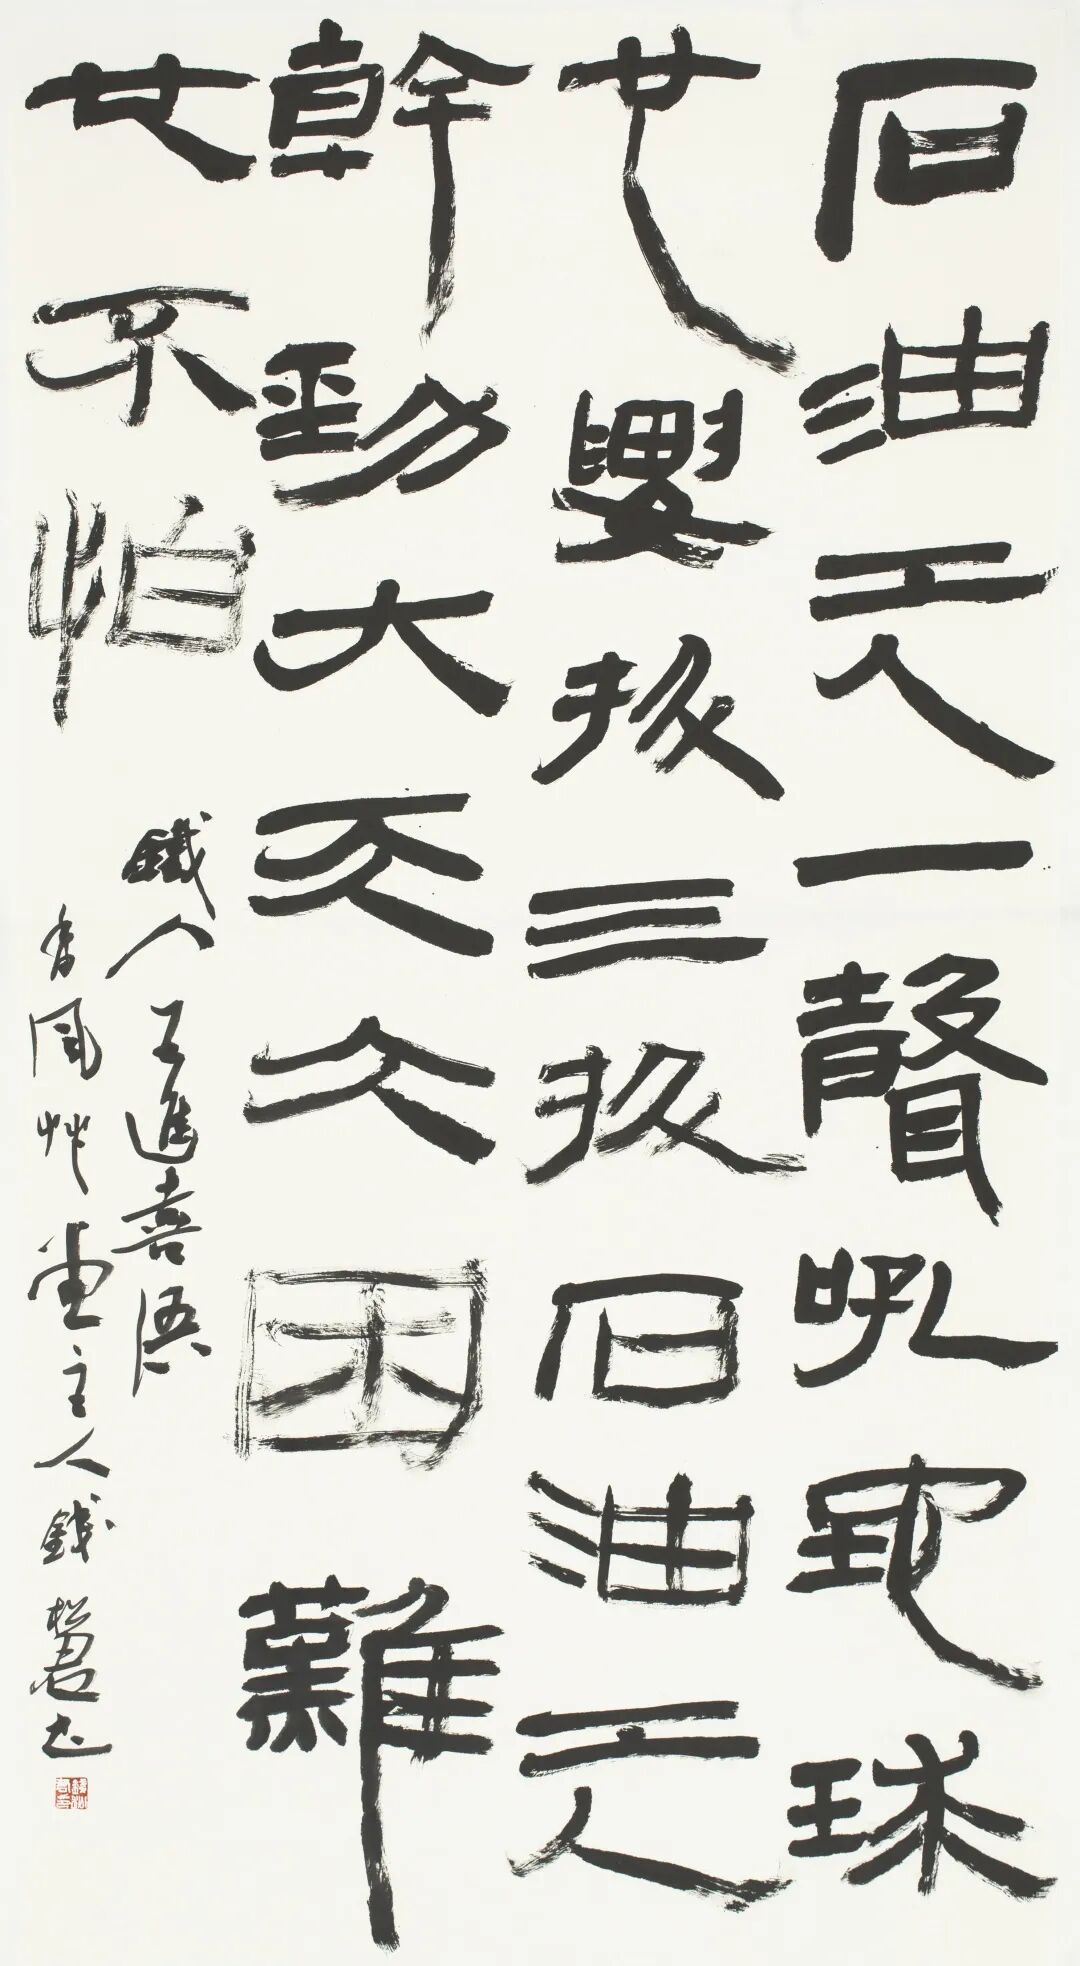 石油工人一聲吼地球
也要抖三抖石油工人
幹勁大天大困難
也不怕
鐵人王進喜語
香風艸堂主人錢松君書